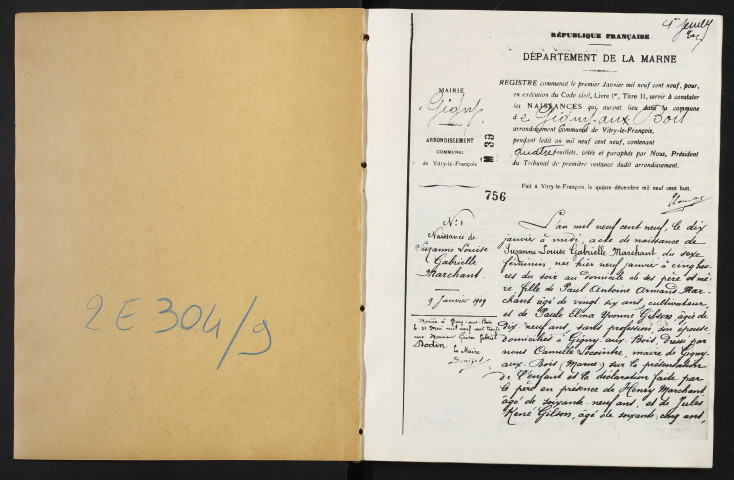 2 E 304/9
RÉPUBLIQUE FRANÇAISE
DÉPARTEMENT DE LA MARNE
REGISTRE commencé le premier Janvier mil neuf cent neuf, pour,
en exécution du Code civil, Livre Ier, Titre II, servir à constater
les NAISSANCES qui auront lieu dans la commune
de Gigny-aux-Bois
arrondissement Communal de Vitry-le-François,
pendant ledit an mil neuf cent neuf, contenant
quatre feuillets, cotés et paraphés par Nous, Président
du Tribunal de première instance dudit arrondissement.
Fait à Vitry-le-François, le quinze décembre mil neuf cent huit.
MAIRIE
Gigny
ARRONDISSEMENT
COMMUNAL
de Vitry-le-François
M 39
756
N: 1
Naissance de
Suzanne Louise
Gabrielle
Marchant.
9 Janvier 1909
Mariée à Gigny-aux-Bois
le 31 Mai mil neuf cent
avec Monsieur
Bodin
le Maire
L'an mil neuf cent neuf, le dix
janvier à midi, acte de naissance de
Suzanne Louise Gabrielle Marchant, du sexe
féminin, née hier neuf janvier à cinq heu-
res du soir au domicile de ses père et mè-
re fille de Paul Antoine Armand Mar-
chant âgé de vingt six ans, cultivateur,
et de Paule Elma Yvonne Gilson, âgée de
dix neuf ans, sans profession, son épouse,
domiciliés à Gigny-aux-Bois, dressé par
nous Camille Lecointre, maire de Gigny-
aux-Bois (Marne) sur la présentation
de l'enfant et la déclaration faite par
le père en présence de Henry Marchant
âgé de soixante neuf ans, et de Jules
René Gilson, âgé de soixante cinq ans,